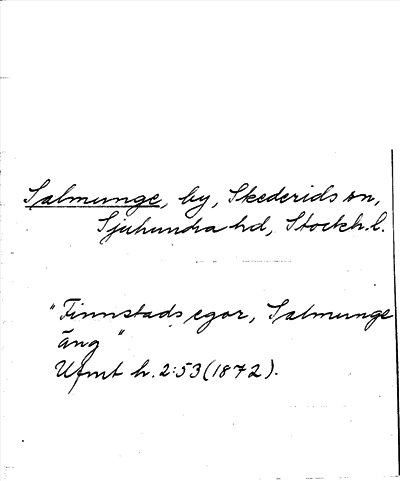 Salmunge, by, Skederids sn,
Sjuhundra hd, Stockh. l.
"Finnstads egor, Salmunge
äng"
Ufmt h. 2:53 (1872).